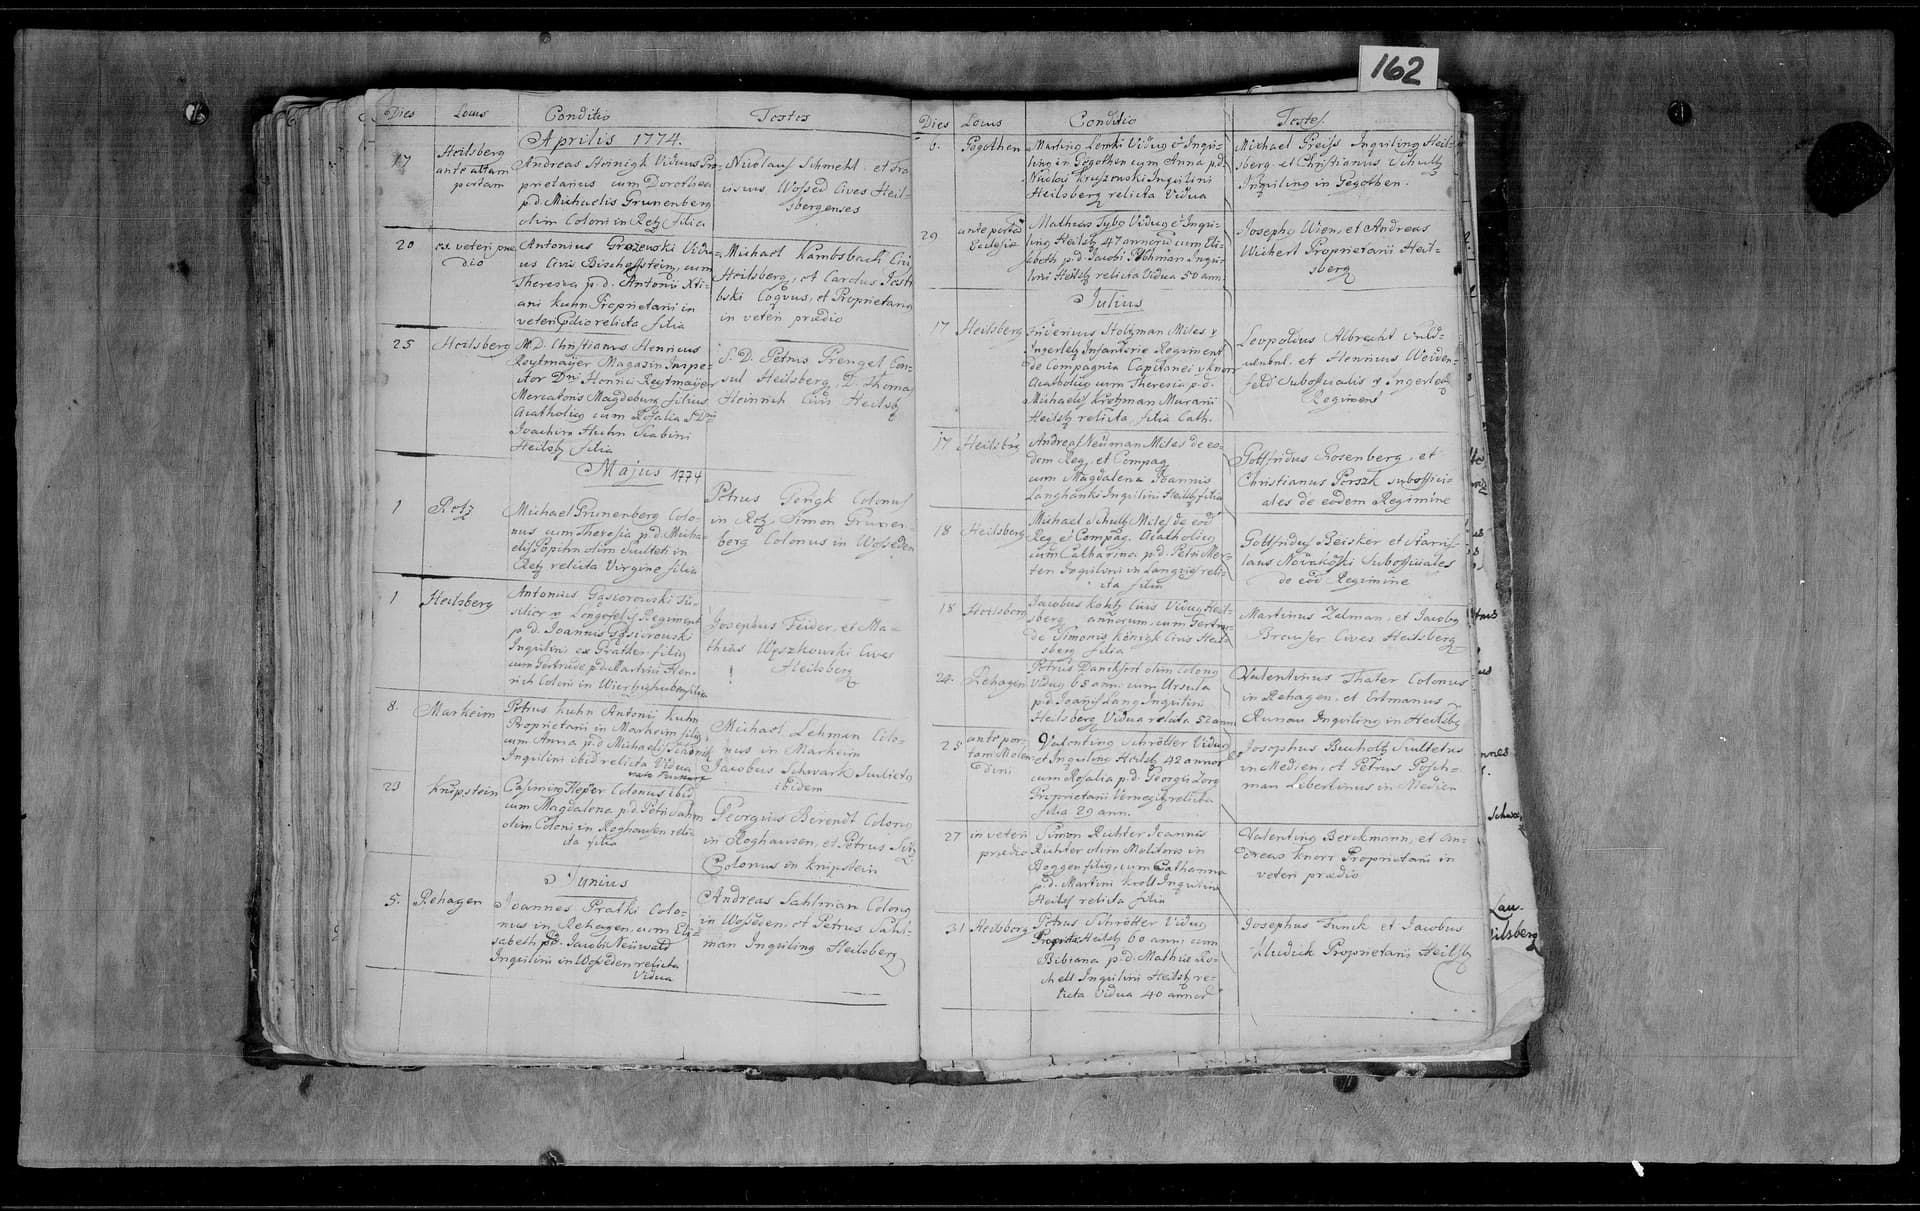 162
Dies Locus Conditio Testes
Aprilis 1774.
17
Heilsberg
ante altam
portam
Andreas Steinigk Viduus Pro-
prietarius cum Dorothea
p.d. Michaelis Grunenberg
olim Coloni in Retz filia
Nicolaus Schmehl et
Cives Heil-
sbergenses
20
ex veteri præ
dio
Antonius Grozewski Vidu-
us Civis Bischoffstein, cum
Theresia p.d. Antonii Xti-
ani Kuhn Proprietarii in
veteri relicta filia
Michael Kambsbach Civis
Heilsberg, et Carolus
bski Coquus, et Proprietarius
in veteri prædio
25
Heilsberg
M.D. Christianus Henricus
Reytmaijer Magasin Inspe-
ctor Dni Henrici Reytmaijer
Mercatoris Magdeburg filius
Acatholicus cum Rosalia
Joachim Huhn Scabini
Heilsb filia
S.D. Petrus Prengel Con-
sul Heilsberg, D. Thomas
Heinrich Civis Heilsb
Majus 1774
1
Retz
Michael Grunenberg Colo-
nus cum Theresia p.d. Micha-
elis olim Sculteti in
Retz relicta Virgine filia
Petrus Gerigk Colonus
in Retz, Simon Grunen-
berg Colonus in Wosseden
1
Heilsberg
Antonius Gasiorowski Fu-
silier Regiment
p.d. Joannis Gasiorowski
Inquilini ex filius
cum Gertrude p.d. Martini Hen-
rich Coloni in filia
Josephus Feider, et Ma-
thias Cives
Heilsberg
8.
Markeim
Petrus Kuhn Antonij Kuhn
Proprietarii in Markeim filius
cum Anna p.d. Michaelis
Inquilini ibid relicta Vidua
Michael Lehman Colo-
nus in Markeim
Jacobus Schwark Scultetus
ibidem
23
Knipstein
Casimirus Colonus ibid
cum Magdalena p.d. Petri
olim Coloni in Roghausen reli
cta filia
Georgius Berendt Colonus
in Roghausen, et Petrus
Colonus in Knipstein
Junius
5.
Rehagen
Joannes Pratki Colo-
nus in Rehagen, cum Eli-
sabeth p.d. Jacobi Neuwald
Inquilini in Wosseden relicta
Vidua
Andreas Sahlman Colonus
in Wosseden, et Petrus Sahl-
man Inquilinus Heilsberg
Dies Locus Conditio Testes
6.
Pegothen
Martinus Lemki Viduus et Inqui-
linus in Pegothen cum Anna p.d.
Nicolai Kruszewski Inquilini
Heilsberg relicta Vidua
Michael Preiss Inquilinus Heil-
sberg et Christianus Schultz
Inquilinus in Pegothen.
29
ante portam
Ecclesiæ
Mathias Tybo Viduus et Inqui-
linus Heilsb 47 annorum cum Eli-
sabeth p.d. Jacobi Inqui-
lini Heilsb relicta Vidua 50 ann
Josephus Wien, et Andreas
Wichert Proprietarii Heil-
sberg
Julius
17
Heilsberg
Fridericus Holtzman Miles
Ingersleb Infanterie Regiment
de Compagnia Capitanei v Knorr
Acatholicus cum Theresia p.d.
Michaelis Krotzman Murarii
Heilsb relicta filia Cath.
Leopoldus Albrecht
et Henricus Weiden-
feld Subofficialis v Ingersleb
Regiment
17
Heilsberg
Andreas Neuman Miles de eo-
dem Reg. et Compag
cum Magdalena Joannis
Langhanki Inquilini Heilsb filia
Gottfridus Rosenberg, et
Christianus Porszk suboffici-
ales de eodem Regimine
18
Heilsberg
Michael Schultz Miles de eod
Reg et Compag. Acatholicus
cum Catharina p.d. Petri Mer-
ten Inquilini in reli-
cta filia
Gottfridus Beisker et Stanis-
laus Nowakoski Subofficiales
de eod Regimine
18
Heilsberg
Jacobus Kohtz Civis Viduus Heil-
sberg annorum, cum Gertru-
de Simonis Königk Civis Heil-
sberg filia
Martinus Zelman, et Jacobus
Brauser Cives Heilsberg
24.
Rehagen
Petrus Danckfort olim Colonus
Viduus 65 ann. cum Ursula
p.d. Joannis Lang Inquilini
Heilsberg Vidua relicta 52 ann
Valentinus Thater Colonus
in Rehagen, et Ertmanus
Runau Inquilinus in Heilsb
25
ante por-
tam Molen
dini
Valentinus Schrötter Viduus
et Inquilinus Heilsb 42 annor
cum Rosalia p.d. Georgii Zorg
Proprietarii relicta
filia 29 ann.
Josephus Bucholtz Scultetus
in Medien, et Petrus Posch-
man Libertinus in Medien
27
in veteri
prædio
Simon Richter Joannis
Richter olim Molitoris in
Roggen filius, cum Catharina
p.d. Martini Kroll Inquilini
Heilsb relicta filia
Valentinus Berckmann, et An-
dreas Knorr Proprietarii in
veteri prædio
31
Heilsberg
Petrus Schrötter Viduus
Heilsb 60 ann. cum
Bibiana p.d. Mathiæ Ro-
chell Inquilini Heilsb re-
licta Vidua 40 annor
Josephus Funck et Jacobus
Hludick Proprietarii Heilsb